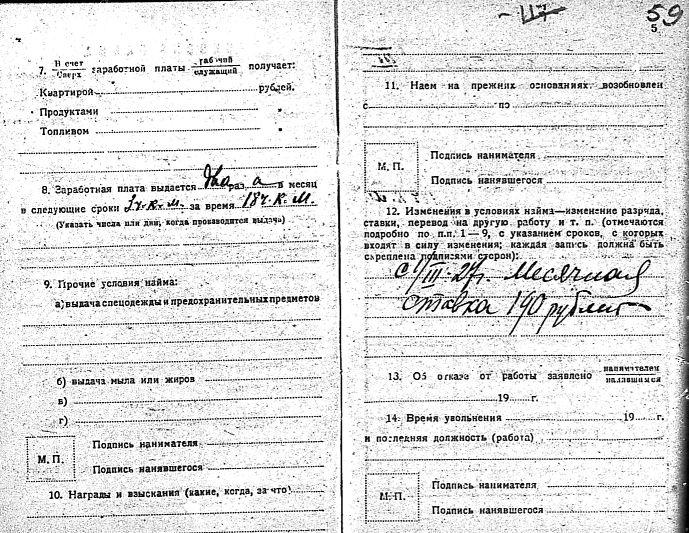 117
59
5
7. В счет Сверх заработной платы рабочий служащий получает:
Квартирой рублей.
Продуктами "
Топливом "
8. Заработная плата выдается два раз а в месяц
в следующие сроки 3 ч. к. м. за время 18 ч. к. м.
(Указать числа или дни, когда производится выдача)
9. Прочие условия найма:
а) выдача спецодежды и предохранительных предметов
б) выдача мыла или жиров
в)
г)
М. П.
Подпись нанимателя
Подпись нанявшегося
10. Награды и взыскания (какие, когда, за что)
11. Наем на прежних основаниях возобновлен
с по
М. П.
Подпись нанимателя
Подпись нанявшегося
12. Изменения в условиях найма—изменение разряда,
ставки, перевод на другую работу и т. п. (отмечаются
подробно по п.п. 1—9, с указанием сроков, с которых
входят в силу изменения; каждая запись должна быть
скреплена подписями сторон):
с 1/III-27г. Месячная
ставка 190 рублей
13. Об отказе от работы заявлено нанимателем нанявшимся
19 г.
14. Время увольнения 19 г.
и последняя должность (работа)
М. П.
Подпись нанимателя
Подпись нанявшегося